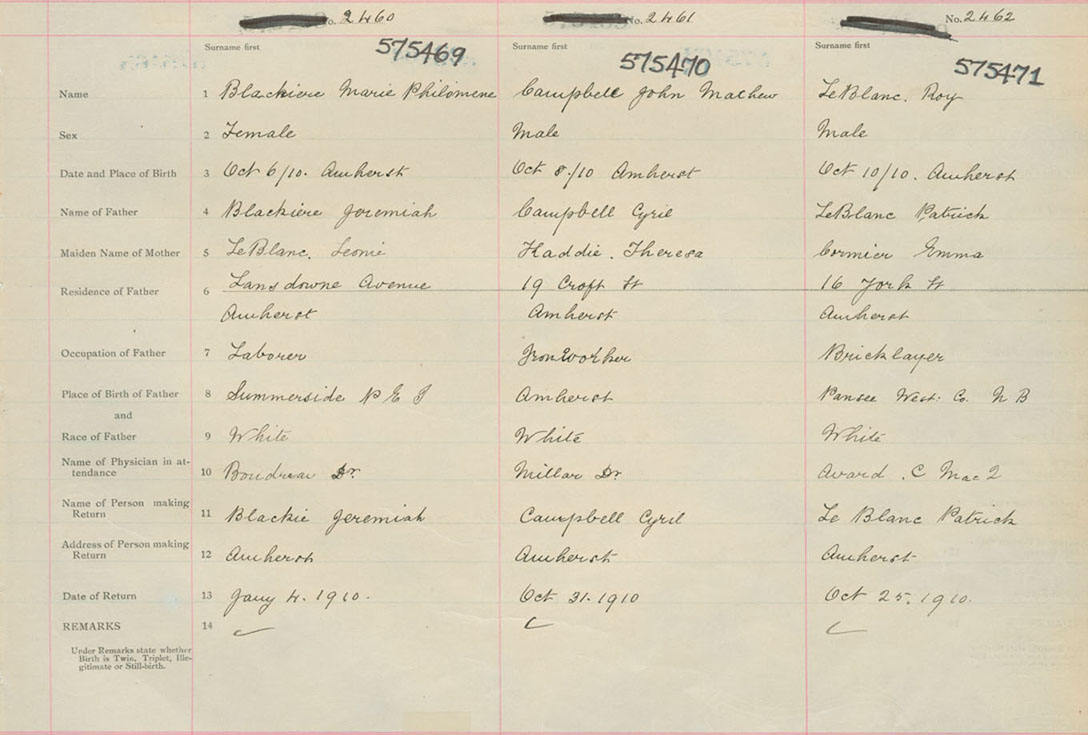 No. 2460 No. 2461 No. 2462
Surname first Surname first Surname first
575469 575470 575471
Name 1 Blackiere Marie Philomene Campbell John Mathew LeBlanc. Roy
Sex 2 Female Male Male
Date and Place of Birth 3 Oct 6/10. Amherst Oct 8/10 Amherst Oct 10/10. Amherst
Name of Father 4 Blackiere Jeremiah Campbell Cyril LeBlanc Patrick
Maiden Name of Mother 5 LeBlanc. Leonie Haddie. Theresa Cormier Emma
Residence of Father 6 Lansdowne Avenue 19 Croft St 16 York St
Amherst Amherst Amherst
Occupation of Father 7 Laborer Iron Worker Bricklayer
Place of Birth of Father 8 Summerside P E I Amherst West. Co. N B
and
Race of Father 9 White White White
Name of Physician in at-
tendance 10 Boudreau Dr. Millar Dr. Avard. C Mac Q
Name of Person making
Return 11 Blackie Jeremiah Campbell Cyril Le Blanc Patrick
Address of Person making
Return 12 Amherst Amherst Amherst
Date of Return 13 Jany 4. 1910. Oct 31. 1910 Oct 25. 1910.
REMARKS 14
Under Remarks state whether
Birth is Twin, Triplet, Ille-
gitimate or Still-birth.